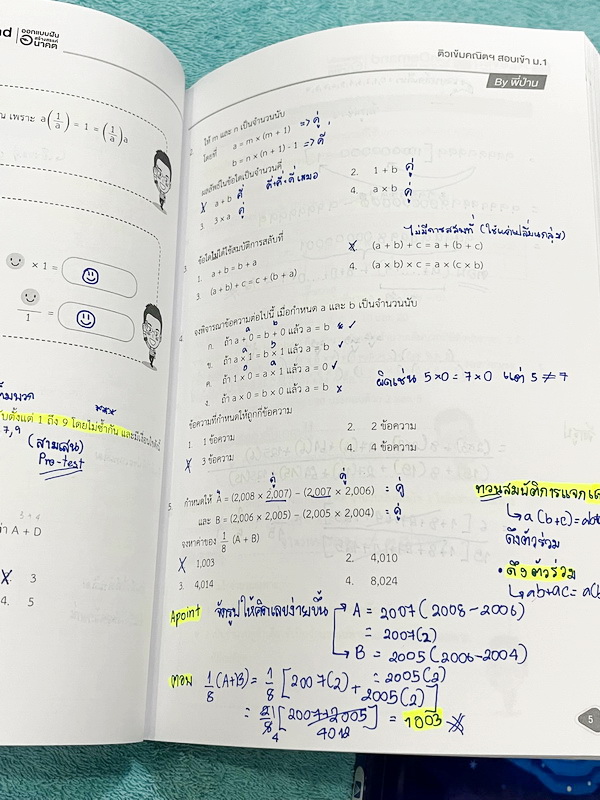 ออกแบบฝัน
สร้างสรรค์
อนาคต
เพราะ a(1/a) = 1 = (1/a)a
× 1 =
1
=
ตั้งแต่ 1 ถึง 9 โดยไม่ซ้ำกัน
7,9
(สามเสน)
Pre-test
3+4
A + D
X 3
4. 5
ติวเข้มคณิตฯ สอบเข้า ม.1
By พี่ป่าน
2. ให้ m และ n เป็นจำนวนนับ
โดยที่ a = m × (m + 1) => คู่
b = n × (n + 1) - 1 => คี่
ผลลัพธ์ในข้อใดเป็นจำนวนคี่
X a + b คี่ คู่+คี่=คี่ เสมอ
2. 1 + b คู่
3. 3 × a คู่
4. a × b คู่
ไม่มีการสลับที่ (ใช้แค่เปลี่ยนกลุ่ม)
3. ข้อใดไม่ได้ใช้สมบัติการสลับที่
1. a + b = b + a
X (a + b) + c = a + (b + c)
3. (a + b) + c = c + (b + a)
4. (a × b) × c = a × (c × b)
4. จงพิจารณาข้อความต่อไปนี้ เมื่อกำหนด a และ b เป็นจำนวนนับ
ก. ถ้า a + 0 = b + 0 แล้ว a = b ✓
ข. ถ้า a × 1 = b × 1 แล้ว a = b ✓
ค. ถ้า 1 × 0 = a × 1 แล้ว a = 0 ✓
ง. ถ้า a × 0 = b × 0 แล้ว a = b ✗
ผิดเช่น 5×0 = 7×0 แต่ 5 ≠ 7
ข้อความที่กำหนดให้ถูกกี่ข้อความ
1. 1 ข้อความ
2. 2 ข้อความ
X 3 ข้อความ
4. 4 ข้อความ
คู่ คู่
5. กำหนดให้ A = (2,008 × 2,007) − (2,007 × 2,006) = คู่
และ B = (2,006 × 2,005) − (2,005 × 2,004) = คู่
จงหาค่าของ 1/8 (A + B)
X 1,003
2. 4,010
3. 4,014
4. 8,024
ทวนสมบัติการแจกแจ
↳ a(b+c) = ab+
ดึงตัวร่วม
• ดึงตัวร่วม
↳ ab+ac = a(b
Apoint จัดรูปให้คิดเลขง่ายขึ้น → A = 2007(2008−2006)
= 2007(2)
→ B = 2005(2006−2004)
= 2005(2)
ตอบ 1/8 (A+B) = 1/8 [2007(2) + 2005(2)]
= 2/8 [2007+2005] = 1003
4 4012
5